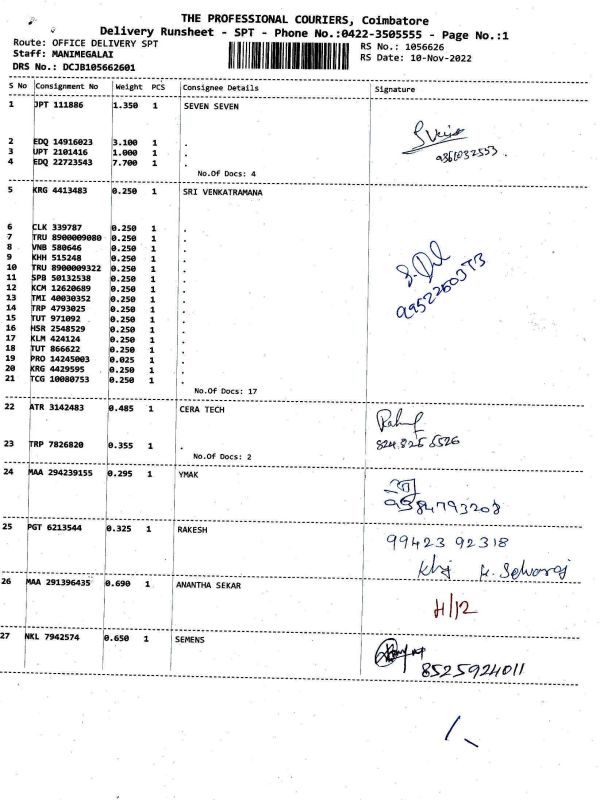 THE PROFESSIONAL COURIERS, Coimbatore
Delivery Runsheet - SPT - Phone No.:0422-3505555 - Page No.:1
Route: OFFICE DELIVERY SPT
Staff: MANIMEGALAI
DRS No.: DCJB105662601
RS No.: 1056626
RS Date: 10-Nov-2022
S No Consignment No Weight PCS Consignee Details Signature
1 JPT 111886 1.350 1 SEVEN SEVEN
2 EDQ 14916023 3.100 1 .
3 UPT 2101416 1.000 1 .
4 EDQ 22723543 7.700 1 .
No.Of Docs: 4
5 KRG 4413483 0.250 1 SRI VENKATRAMANA
6 CLK 339787 0.250 1 .
7 TRU 8900009080 0.250 1 .
8 VNB 580646 0.250 1 .
9 KHH 515248 0.250 1 .
10 TRU 8900009322 0.250 1 .
11 SPB 50132538 0.250 1 .
12 KCM 12620689 0.250 1 .
13 TMI 40030352 0.250 1 .
14 TRP 4793025 0.250 1 .
15 TUT 971092 0.250 1 .
16 HSR 2548529 0.250 1 .
17 KLM 424124 0.250 1 .
18 TUT 866622 0.250 1 .
19 PRO 14245003 0.025 1 .
20 KRG 4429595 0.250 1 .
21 TCG 10080753 0.250 1 .
No.Of Docs: 17
22 ATR 3142483 0.485 1 CERA TECH
23 TRP 7826820 0.355 1 .
No.Of Docs: 2
24 MAA 294239155 0.295 1 YMAK
9384793208
25 PGT 6213544 0.325 1 RAKESH
99423 92318
26 MAA 291396435 0.690 1 ANANTHA SEKAR
H/12
27 NKL 7942574 0.650 1 SEMENS
8525924011